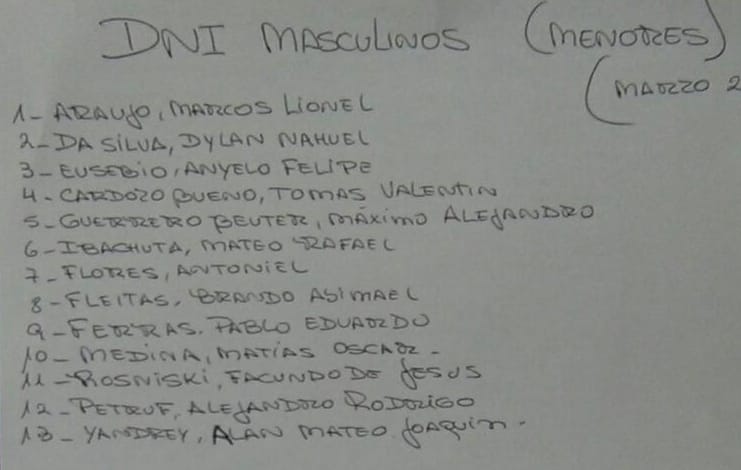 DNI MASCULINOS (MENORES)
(MARZO 2
1- ARAUJO, MARCOS LIONEL
2- DA SILVA, DYLAN NAHUEL
3- EUSEBIO, ANYELO FELIPE
4- CARDOZO BUENO, TOMAS VALENTIN
5- GUERRERO BEUTER, MÁXIMO ALEJANDRO
6- IBACHUTA, MATEO RAFAEL
7- FLORES, ANTONIEL
8- FLEITAS, BRANDO ASIMAEL
9- FERRAS. PABLO EDUARDO
10- MEDINA, MATÍAS OSCAR-
11- ROSNISKI, FACUNDO DE JESUS
12- PETRUF, ALEJANDRO RODRIGO
13- YANDREY, ALAN MATEO JOAQUIN-